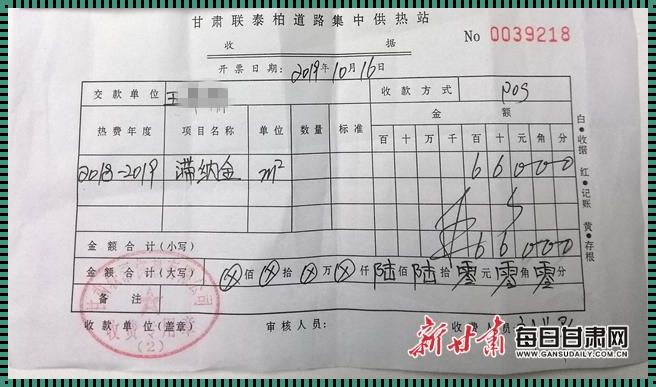 甘肃联泰柏道路集中供热站
收 据 No 0039218
开票日期：2019年10月16日
交款单位 王 收款方式 pos
热费年度 项目名称 单位 数量 标准 金额
百 十 万 千 百 十 元 角 分
2018-2019 滞纳金 m² 6 6 0 0 0
金额合计(小写) 6 6 0 0 0
金额合计(大写) ⊗佰⊗拾⊗万⊗仟陆佰陆拾零元零角零分
备注
收款单位(盖章) 审核人员: 收费人员:
白·收据 红·记账 黄·存根
收费专用章
(2)
新甘肃 每日甘肃网
WWW.GANSUDAILY.COM.CN